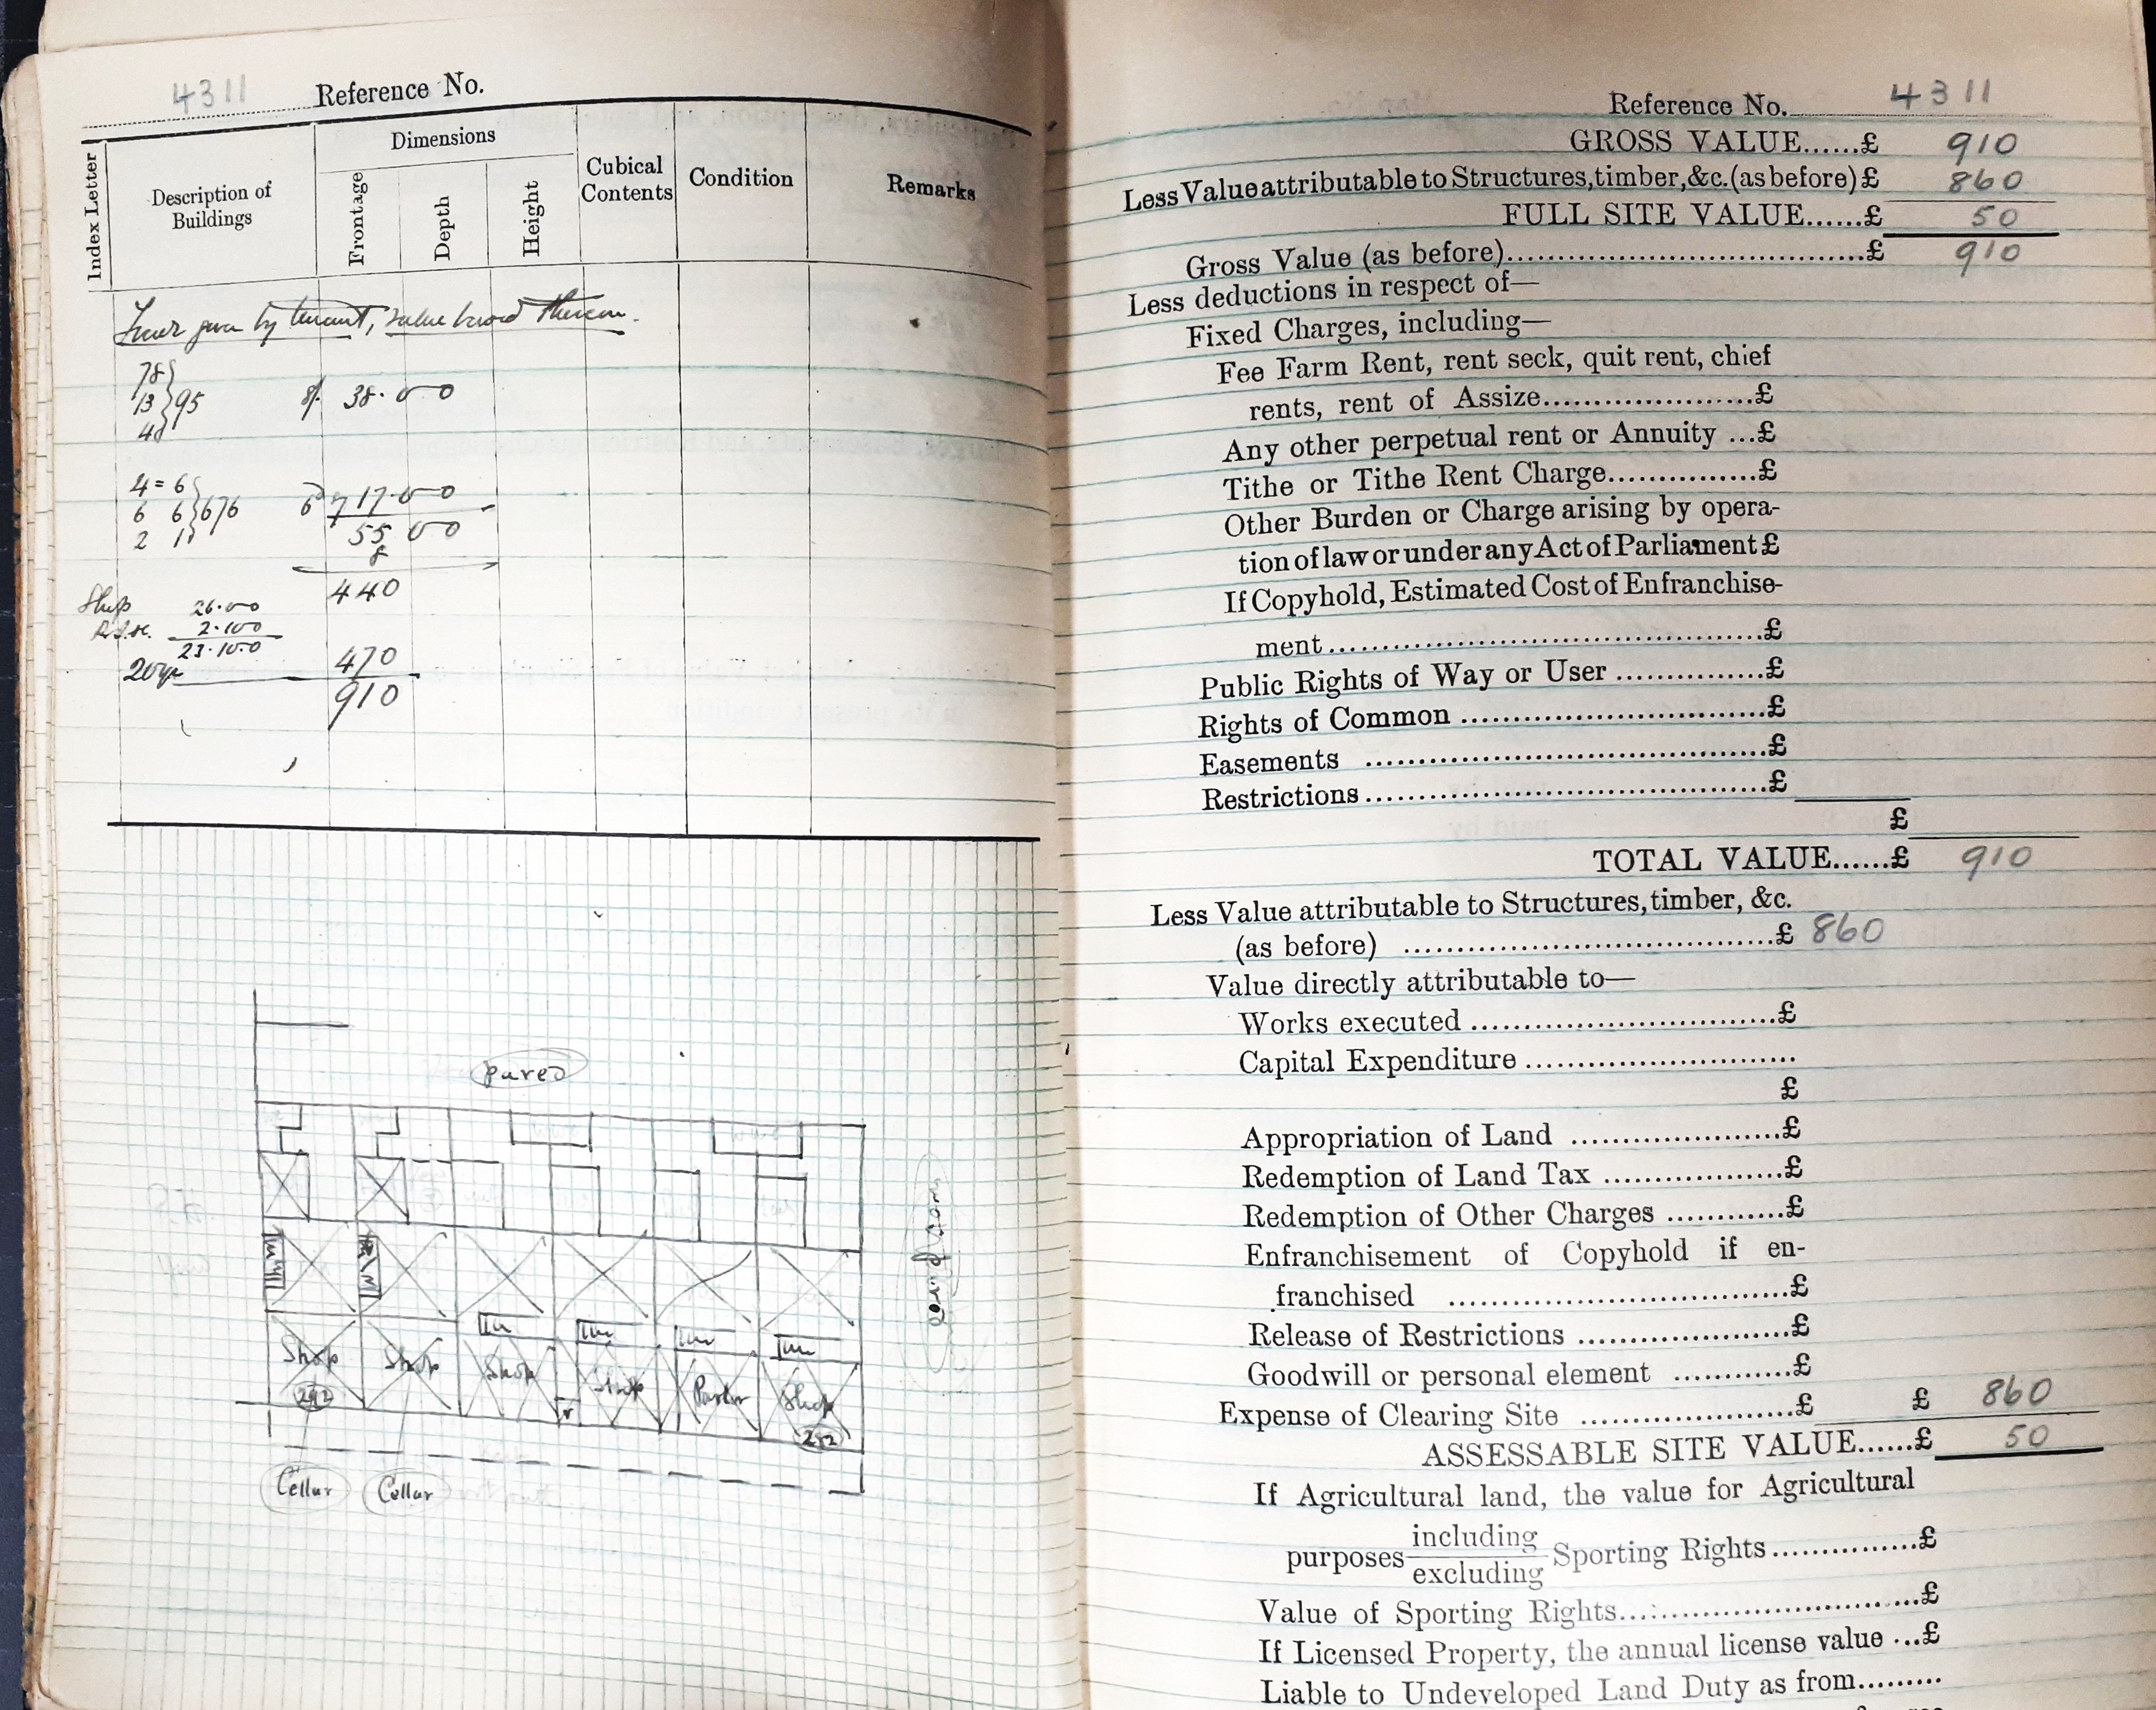 4311 Reference No.
Index Letter
Description of Buildings
Dimensions
Frontage
Depth
Height
Cubical Contents
Condition
Remarks
given by tenant, value based thereon.
78
13 } 95 8/- 38.0 0
4
4 = 6
6 6 } 676 17.0 0
2 1
55 0 0
8
440
Shop 26.0.0
2.10.0
23.10.0
20 yr 470
910
paved
paved
Shop
Shop
Shop
Shop
Parlor
Shop
2+2
2+2
Cellar
Cellar
Reference No. 4311
GROSS VALUE......£ 910
Less Value attributable to Structures, timber, &c. (as before) £ 860
FULL SITE VALUE......£ 50
Gross Value (as before)......£ 910
Less deductions in respect of—
Fixed Charges, including—
Fee Farm Rent, rent seck, quit rent, chief
rents, rent of Assize......£
Any other perpetual rent or Annuity ...£
Tithe or Tithe Rent Charge......£
Other Burden or Charge arising by opera-
tion of law or under any Act of Parliament £
If Copyhold, Estimated Cost of Enfranchise-
ment......£
Public Rights of Way or User ......£
Rights of Common ......£
Easements ......£
Restrictions......£
£
TOTAL VALUE......£ 910
Less Value attributable to Structures, timber, &c.
(as before) ......£ 860
Value directly attributable to—
Works executed ......£
Capital Expenditure ......
£
Appropriation of Land ......£
Redemption of Land Tax ......£
Redemption of Other Charges ......£
Enfranchisement of Copyhold if en-
franchised ......£
Release of Restrictions ......£
Goodwill or personal element ......£
Expense of Clearing Site ......£ £ 860
ASSESSABLE SITE VALUE......£ 50
If Agricultural land, the value for Agricultural
purposes including
excluding Sporting Rights......£
Value of Sporting Rights......£
If Licensed Property, the annual license value ...£
Liable to Undeveloped Land Duty as from.........